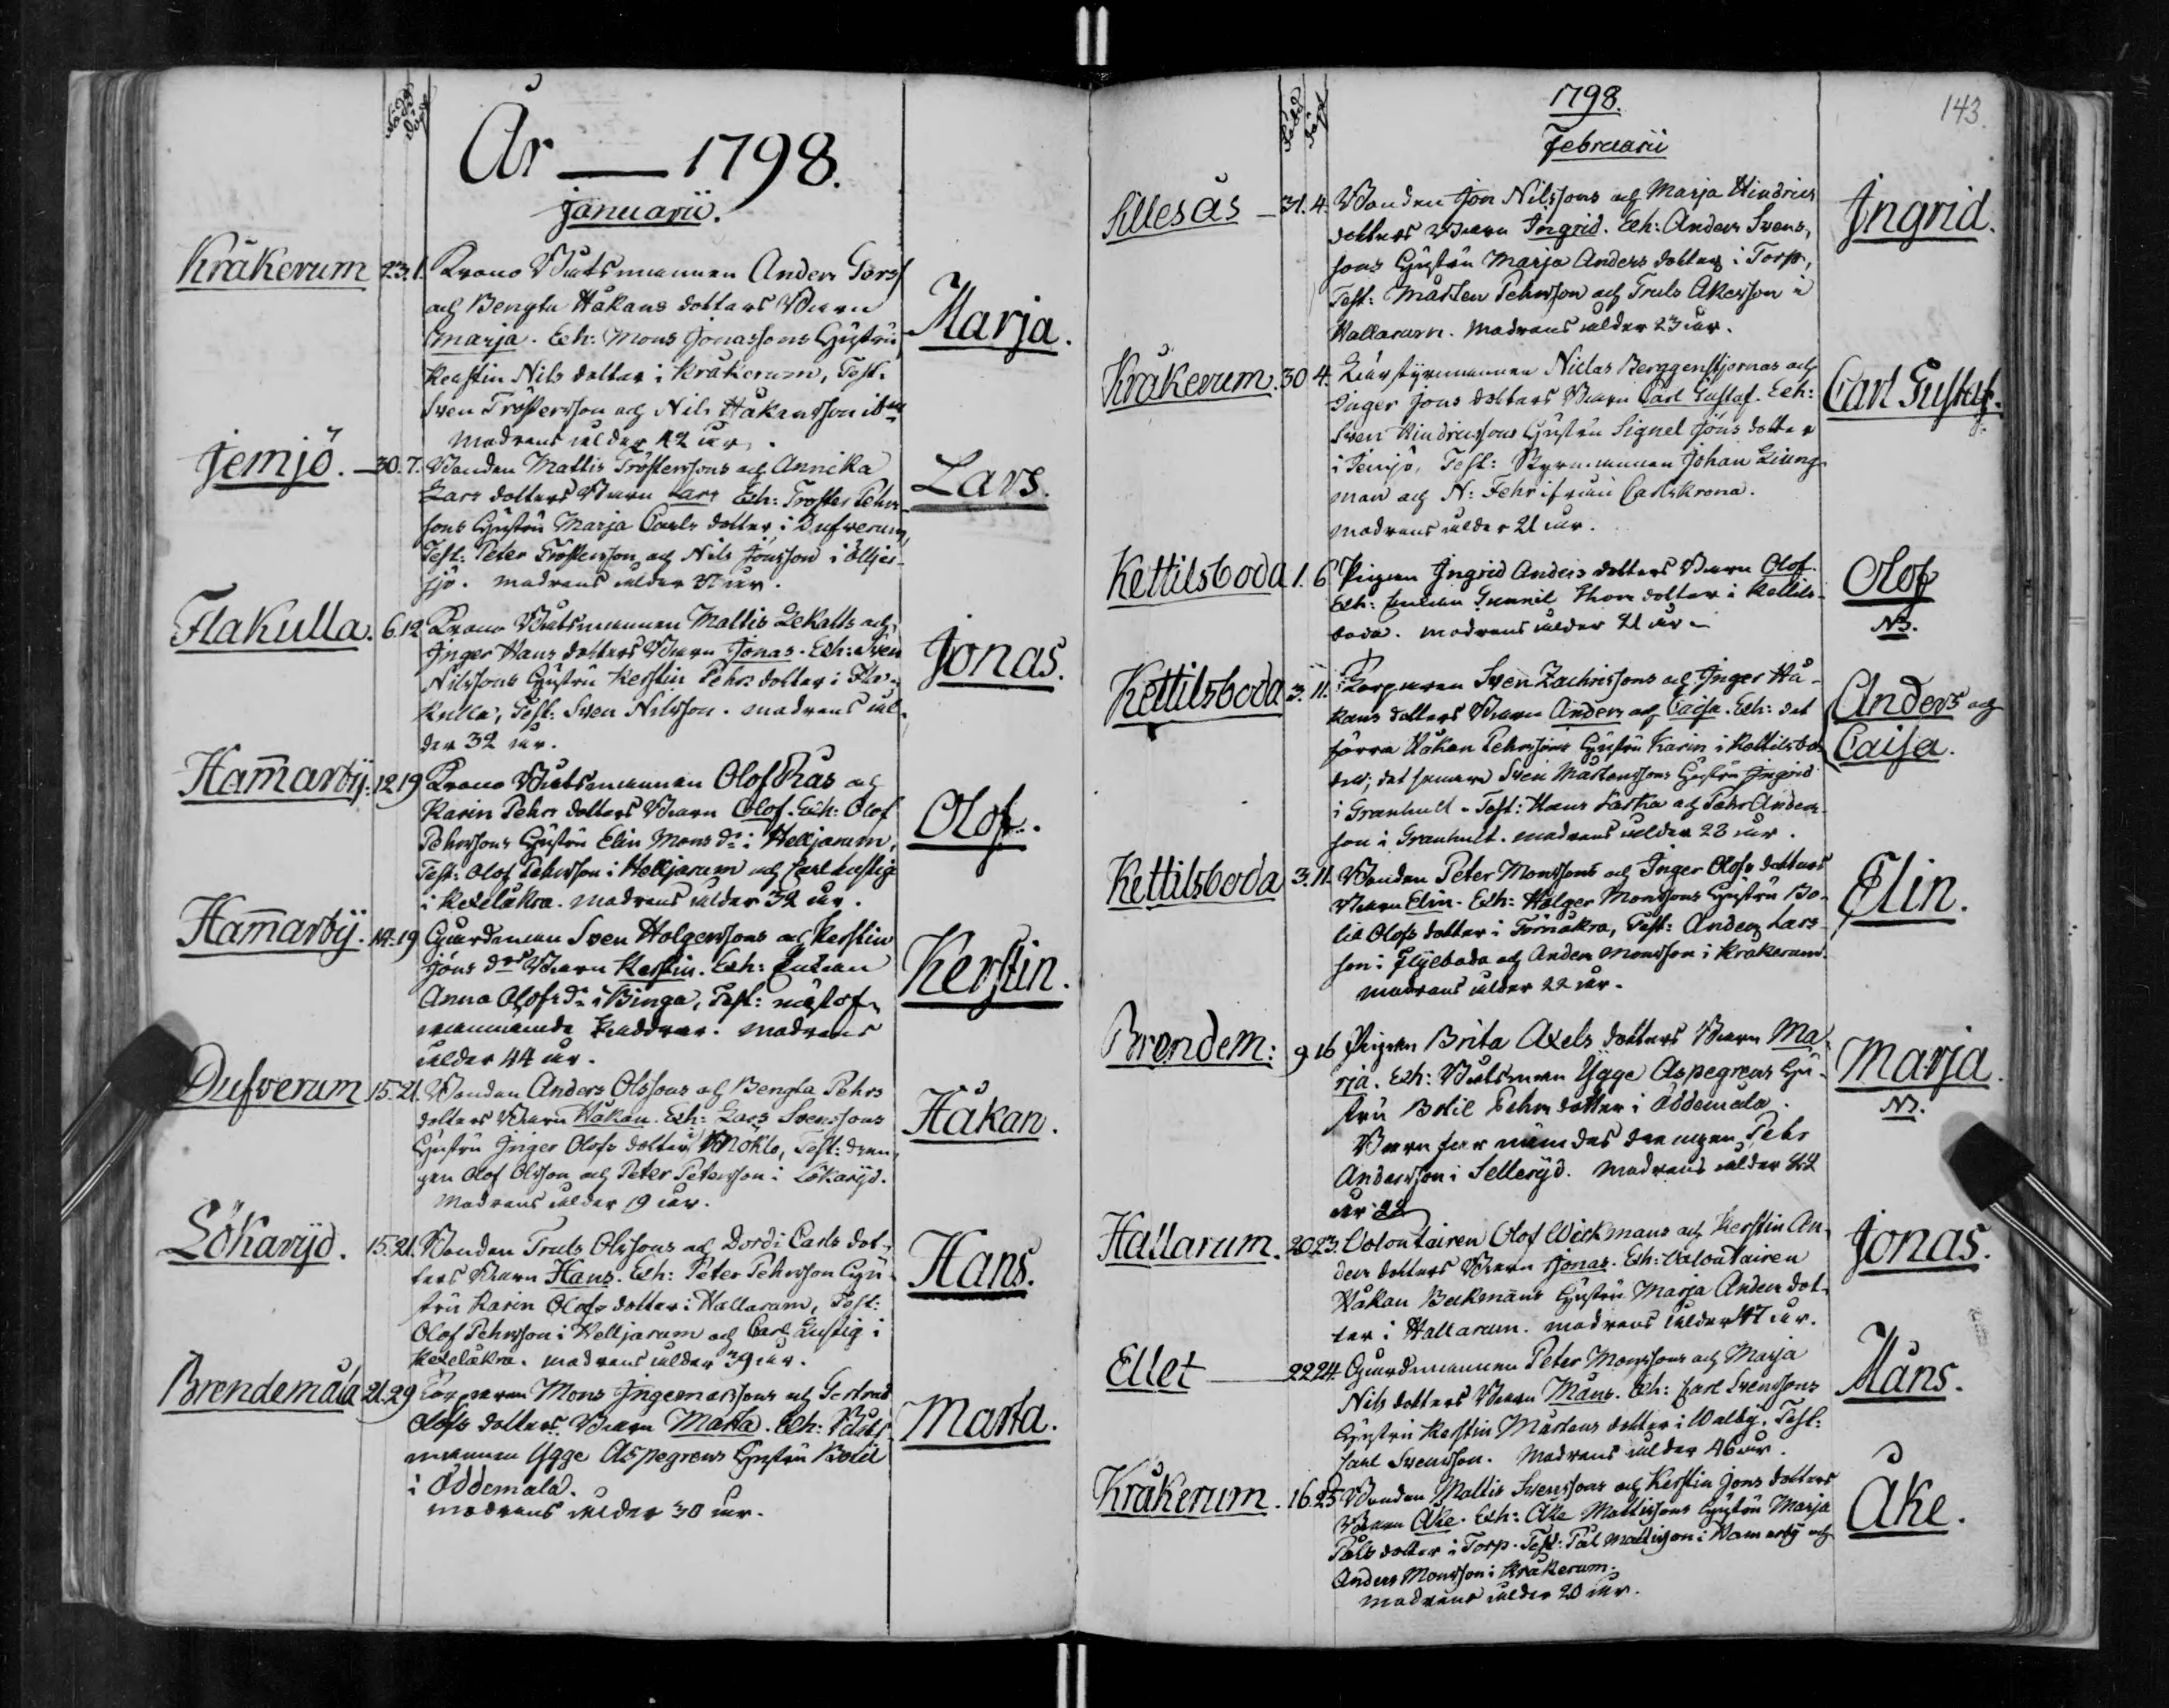 År — 1798.
Januarii.
Kråkerum 23. 1. Krono Båtsmannen Anders Tors
och Bengta Håkans dotters Barn
Marja. Exh: Mons Jonassons Hustru
Kerstin Nils dotter i Kråkerum, Test:
Sven Tröstersson och Nils Håkansson
modrens ålder 42 år.
Marja.
Jemjö. 30. 7. Bonden Mattis Tröstenssons och Annika
Lars dotters Barn Lars Exh: Troster Pehrs
sons Hustru Marja Carls dotter i Dufverum,
Test: Peter Tröstensson och Nils Jönsson i
sjö. modrens ålder år.
Lars.
Flakulla. 6. 12 Krono Båtsmannen Mattis och
Inger Hans dotters Barn Jonas. Exh: Sven
Nilssons Hustru Kerstin Pehrs dotter i Fla-
kulla, Test: Sven Nilsson. modrens ål-
der 32 år.
Jonas.
Ham̄arbÿ. 12 19 Krono Båtsmannen Olof och
Karin Pehrs dotters Barn Olof. Exh: Olof
Pehrssons Hustru Elin Mons dr i Helljarum,
Test: Olof Pehrsson i Helljarum och Carl Lustig
i Kexelåkra. modrens ålder 32 år.
Olof.
Ham̄arbÿ. 14. 19 Guardman Sven Holgerssons och Kerstin
Jöns drs Barn Kerstin. Exh:
Anna Olofs dr i Binga, Test:
modrens
ålder 44 år.
Kerstin.
Dufverum 15. 21. Bonden Anders Olssons och Bengta Pehrs
dotters Barn Håkan. Exh: Lars Svenssons
Hustru Inger Olofs dotter i Möklo, Test: dren-
gen Olof Olsson och Peter Petersson i Lökarÿd.
Modrens ålder 19 år.
Håkan.
Lökarÿd. 15. 21. Bonden Truls Olssons och Dordi Carls dot-
ters Barn Hans. Exh: Peter Pehrsson Hu-
stru Karin Olofs dotter i Hallarum, Test:
Olof Pehrsson i Helljarum och Carl Lustig i
Kexelåkra. modrens ålder 39 år.
Hans.
Brendemåla 21. 29 Torparen Mons Ingemarssons och Gertrud
Olofs dotters Barn Marta. Exh: Båts-
mannen Ygge Aspegrens Hustru Botil
i Oddemåla.
modrens ålder 30 år.
Marta.
1798.
143.
Februarii
31. 4. Bonden Jon Nilssons och Marja Hindrics
dotters Barn Ingrid. Exh: Anders Svens-
sons Hustru Marja Anders dotter i Torp,
Test: Mårten Pehrsson och Truls Åkesson i
Hallarum. modrens ålder 23 år.
Ingrid.
Kråkerum. 30 4. Lärstyrmannen Niclas Berggenstjernas och
Inger Jons dotters Barn Carl Gustaf. Exh:
Sven Hindricssons Hustru Signel Jöns dotter
i Jemjö, Test: Styrmannen Johan Liung-
man och N: Fehr ifrån Carlskrona.
modrens ålder 21 år.
Carl Gustaf.
Kettilsboda 1. 6. Pigan Ingrid Anders dotters Barn Olof.
Exh: Gunnil Thors dotter i Kettils-
boda. modrens ålder 21 år
Olof
NB.
Kettilsboda 3. 11. Torparen Sven Zachrissons och Inger Hå-
kans dotters Barn Anders och Caisa. Exh: det
förra Håkan Pehrssons Hustru Karin i Kettilsbo-
da; det senare Sven Mårtenssons Hustru Ingrid
i Granhult. Test: Hans och Pehr Anders-
son i Granhult. modrens ålder 28 år.
Anders och
Caisa.
Kettilsboda 3. 11. Bonden Peter Monssons och Inger Olofs dotters
Barn Elin. Exh: Holger Monssons Hustru Bo-
til Olofs dotter i Törnåkra, Test: Anders Lars-
son i Flÿeboda och Anders Monsson i Kråkerum.
modrens ålder 22 år.
Elin.
Brendem: 9 16 Pigan Brita Axels dotters Barn Ma-
rja. Exh: Båtsman Ygge Aspegrens Hu-
stru Botil Pehrs dotter i Oddemåla.
Barn far nämdes drengen Pehr
Andersson i Sellerÿd. Modrens ålder
år 22
Marja.
NB.
Hallarum. 20 23. Volontairen Olof Wickmans och Kerstin An-
ders dotters Barn Jonas. Exh: Volontairen
Håkan Beckmans Hustru Marja Anders dot-
ter i Hallarum. modrens ålder 47 år.
Jonas.
Ellet 22 24 Guardmannen Peter Monssons och Marja
Nils dotters Barn Måns. Exh: Carl Svenssons
Hustru Kerstin Mårtens dotter i Walbÿ. Test:
Carl Svensson. Modrens ålder 46 år.
Måns.
Kråkerum. 16. 25 Bonden Mattis Svenssons och Kerstin Jons dotters
Barn Åke. Exh: Åke Mattissons Hustru Marja
Påls dotter i Torp. Test: Pål Mattisson i Hamarbÿ och
Anders Monsson i Kråkerum.
modrens ålder 20 år.
Åke.